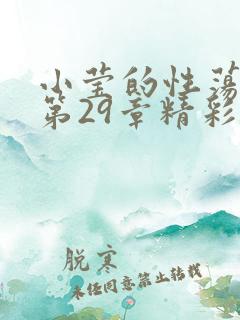 小莹的性荡
第29章精彩
脱寒
未经同意禁止转载